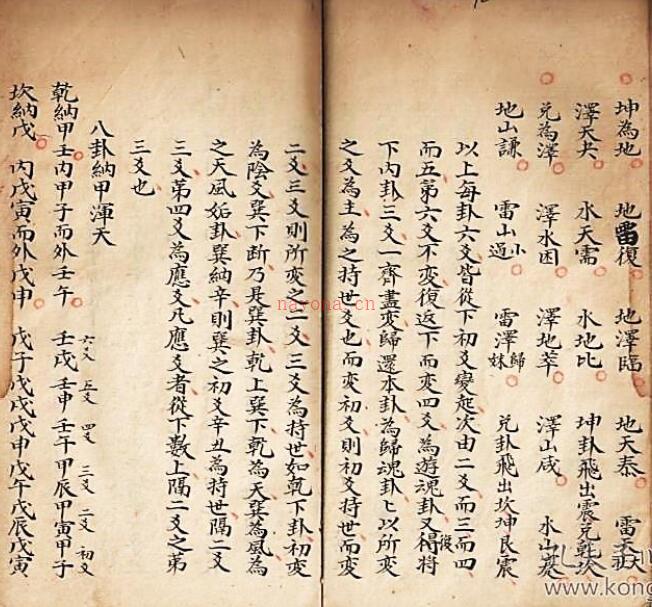 坤為地 地雷復 地澤臨 地天泰 雷天
澤天夬 水天需 水地比 坤卦飛出震兌乾坎
兌為澤 澤水困 澤地萃 澤山咸 水山蹇
地山謙 雷山小過 雷澤歸妹 兌卦飛出坎坤艮震
以上每卦六爻皆從下初爻變起次由二爻而三而四
而五第六爻不变復返下而变四爻為遊魂卦又復得將
下内卦三爻一齊盡变歸還本卦為歸魂卦匕以所変
之爻為主為之持世爻也而变初爻則初爻持世而変
二爻三爻則所変之二爻三爻為持世如乾下卦初変
為陰爻巽下断乃是巽卦乾上巽下乾為天巽為風為
之天風姤卦巽納辛則巽之初爻辛丑為持世隔二爻
三爻第四爻為應爻凡應爻者從下數上隔二爻之第
三爻也
八卦納甲渾天
六爻 五爻 四爻 三爻 二爻 初爻
乾納甲壬内甲子而外壬午 壬戌壬申壬午甲辰甲寅甲子
坎納戊 内戊寅而外戊申 戊子戊戌戊申戊午戊辰戊寅
nayona.cn
www.kong